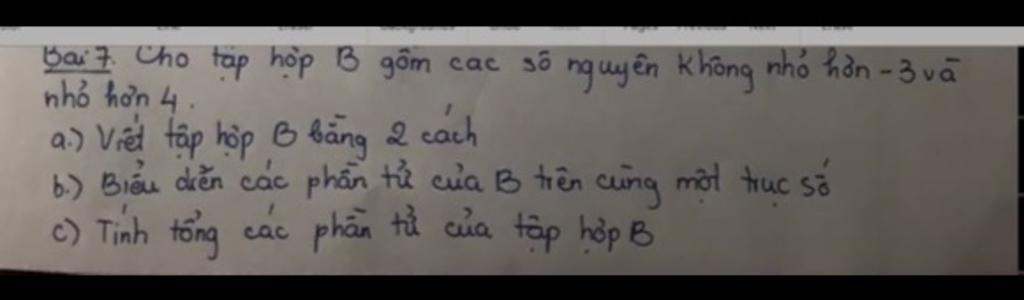 Bài 7. Cho tập hợp B gồm các số nguyên không nhỏ hơn -3 và
nhỏ hơn 4.
a.) Viết tập hợp B bằng 2 cách
b.) Biểu diễn các phần tử của B trên cùng một trục số
c) Tính tổng các phần tử của tập hợp B